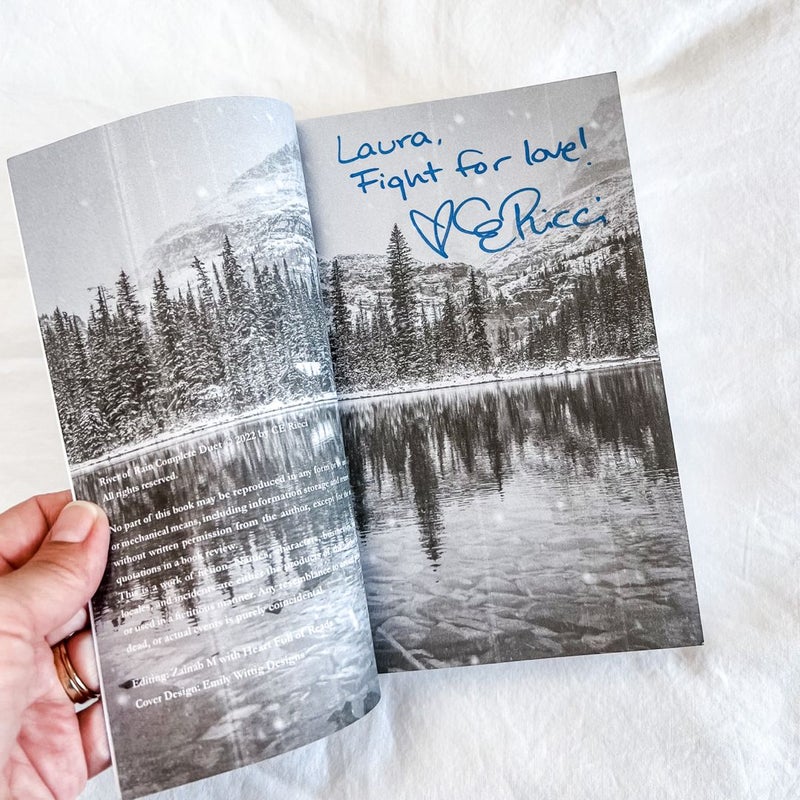 River of Rain Complete Duet © 2022 by CE Ricci
All rights reserved.
No part of this book may be reproduced in any form or
or mechanical means, including information storage and
without written permission from the author, except for the
quotations in a book review.
This is a work of fiction. Names, characters,
locales, and incidents are either the products of the
or used in a fictitious manner. Any resemblance to
dead, or actual events is purely coincidental.
Editing: Zainab M with Heart Full of Reads
Cover Design: Emily Wittig Designs
Laura,
Fight for love!
♡CE Ricci